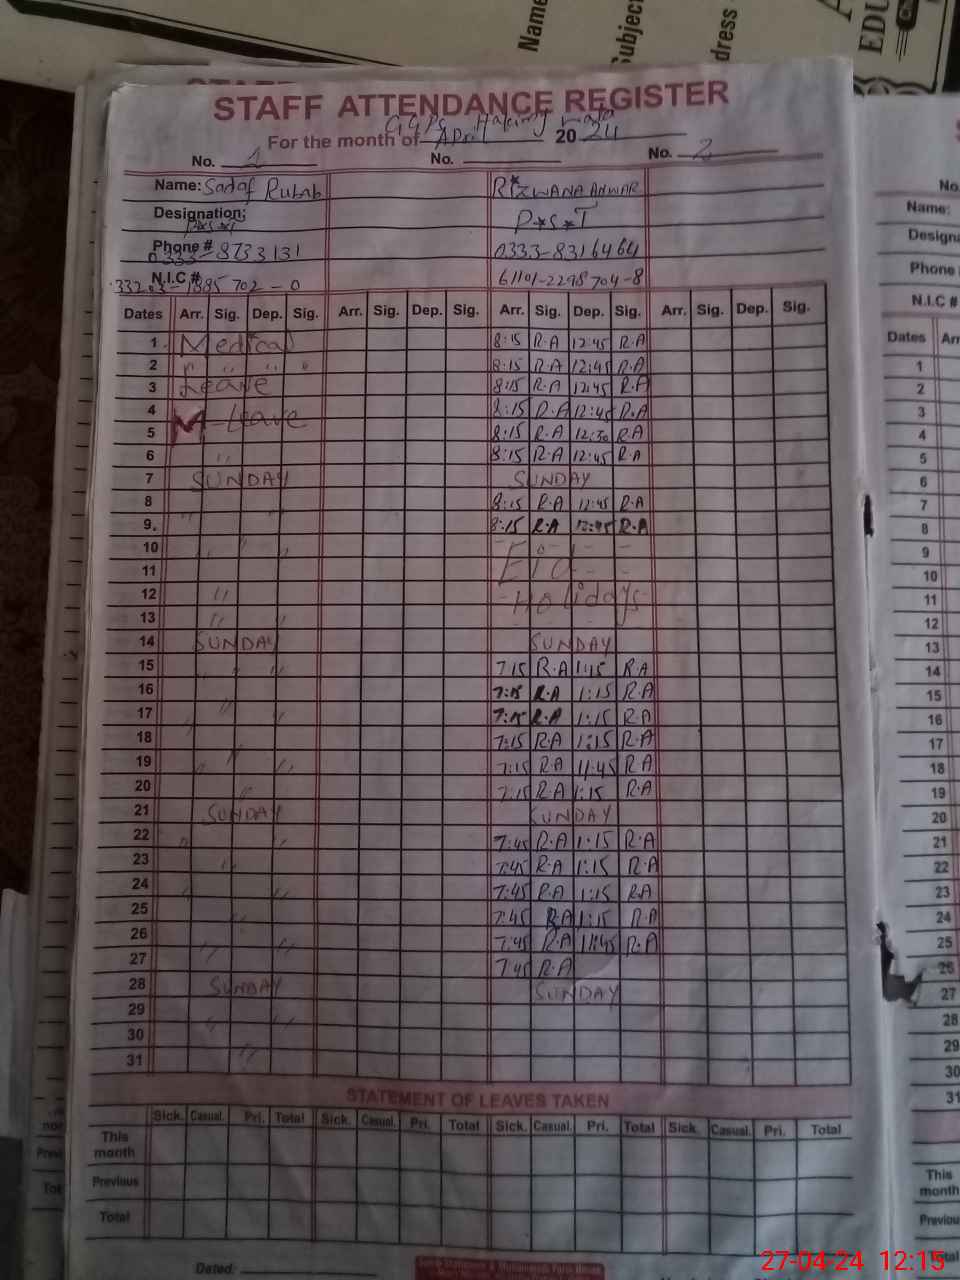 Name
Subject
dress
EDU
STAFF ATTENDANCE REGISTER
For the month of April 2024
No. 1 No. No. 2
Name: Sadaf Rubab RIZWANA ANWAR
Designation: P*S*T P*S*T
Phone # 0333-8733131 0333-8316464
N.I.C # 61101-2298704-8
Dates Arr. Sig. Dep. Sig. Arr. Sig. Dep. Sig. Arr. Sig. Dep. Sig. Arr. Sig. Dep. Sig.
1 Medical 8:15 R.A 12:45 R.A
2 " " " " 8:15 R.A 12:45 R.A
3 Leave 8:15 R.A 12:45 R.A
4 M-Leave 8:15 R.A 12:45 R.A
5 8:15 R.A 12:30 R.A
6 " 8:15 R.A 12:45 R.A
7 SUNDAY SUNDAY
8 8:15 R.A 12:45 R.A
9. " " 8:15 R.A 12:45 R.A
10 " "
11 Eid
12 " Holidays
13 " "
14 SUNDAY SUNDAY
15 " " 7 15 R.A 1:15 R.A
16 " 7:15 R.A 1:15 R.A
17 " " 7:15 R.A 1:15 R.A
18 7:15 R.A 1:15 R.A
19 " " 7:15 R.A 11:45 R.A
20 " 7:15 R.A 1:15 R.A
21 SUNDAY SUNDAY
22 " " 7:45 R.A 1:15 R.A
23 " 7:45 R.A 1:15 R.A
24 " " 7:45 R.A 1:15 R.A
25 " 7:45 R.A 1:15 R.A
26 " " 7:45 R.A 11:45 R.A
27 7 45 R.A
28 SUNDAY SUNDAY
29
30 " "
31 "
STATEMENT OF LEAVES TAKEN
Sick. Casual. Pri. Total Sick. Casual. Pri. Total Sick. Casual. Pri. Total Sick. Casual. Pri. Total
This month
Previous
Total
Dated:
No.
Name:
Phone
N.I.C #
Dates Arr
1
2
3
4
5
6
7
8
9
10
11
12
13
14
15
16
17
18
19
20
21
22
23
24
25
26
27
28
29
30
31
This month
Previou
Total
27-04-24 12:15